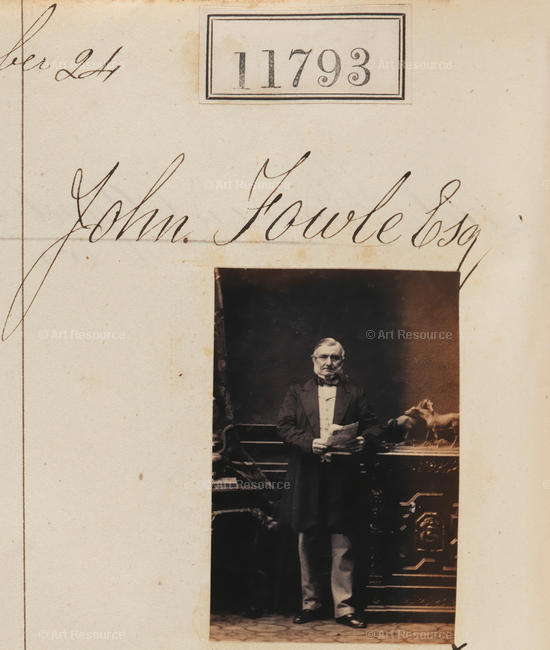 ber 24
11793
John Fowle Esq
© Art Resource
© Art Resource
© Art Resource
© Art Resource
© Art Resource
© Art Resource
© Art Resource
© Art Resource